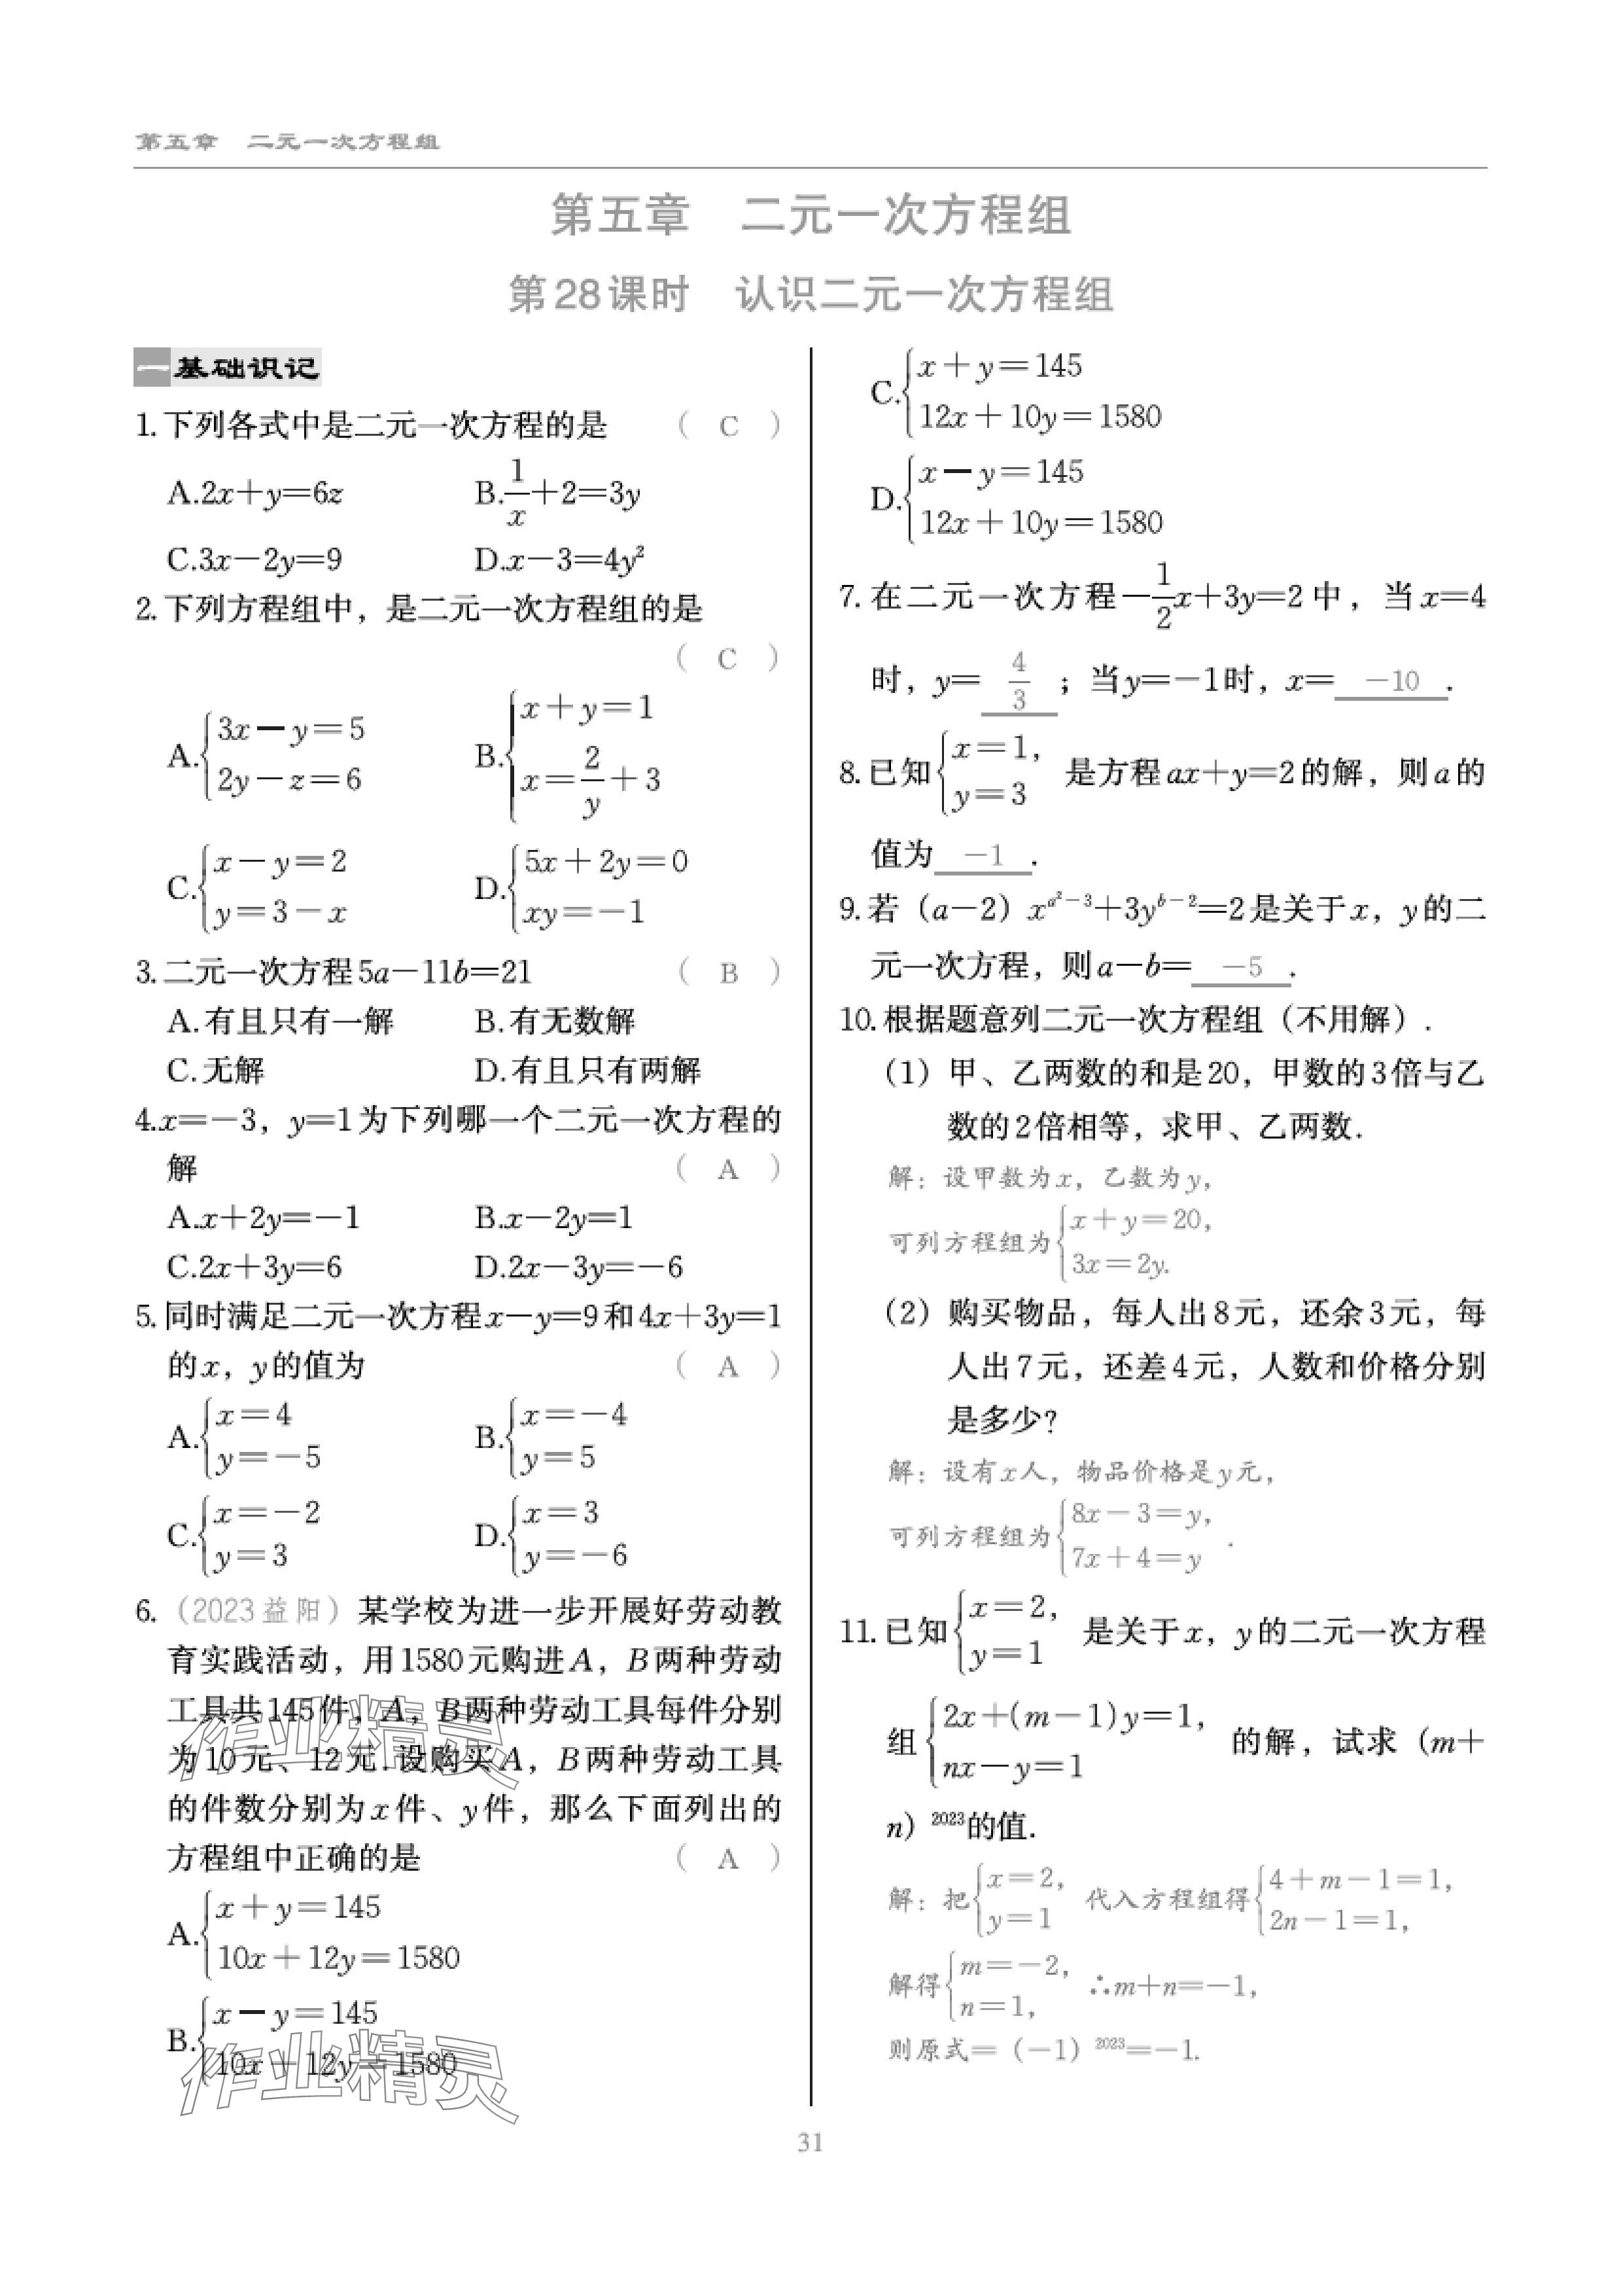 第五章 二元一次方程组
第五章 二元一次方程组
第28课时 认识二元一次方程组
一 基础识记
1. 下列各式中是二元一次方程的是 ( C )
A.2x+y=6z B.1/x+2=3y
C.3x-2y=9 D.x-3=4y²
2. 下列方程组中，是二元一次方程组的是
( C )
A.{3x-y=5 2y-z=6 B.{x+y=1 x=2/y+3
C.{x-y=2 y=3-x D.{5x+2y=0 xy=-1
3. 二元一次方程5a-11b=21 ( B )
A. 有且只有一解 B. 有无数解
C. 无解 D. 有且只有两解
4. x=-3，y=1为下列哪一个二元一次方程的
解 ( A )
A.x+2y=-1 B.x-2y=1
C.2x+3y=6 D.2x-3y=-6
5. 同时满足二元一次方程x-y=9和4x+3y=1
的x，y的值为 ( A )
A.{x=4 y=-5 B.{x=-4 y=5
C.{x=-2 y=3 D.{x=3 y=-6
6.（2023益阳）某学校为进一步开展好劳动教
育实践活动，用1580元购进A，B两种劳动
工具共145件，A，B两种劳动工具每件分别
为10元、12元.设购买A，B两种劳动工具
的件数分别为x件、y件，那么下面列出的
方程组中正确的是 ( A )
A.{x+y=145 10x+12y=1580
B.{x-y=145 10x+12y=1580
C.{x+y=145 12x+10y=1580
D.{x-y=145 12x+10y=1580
7. 在二元一次方程-1/2x+3y=2中，当x=4
时，y= 4/3 ；当y=-1时，x= -10 .
8. 已知{x=1, y=3 是方程ax+y=2的解，则a的
值为 -1 .
9. 若（a-2）x^(a²-3)+3y^(b-2)=2是关于x，y的二
元一次方程，则a-b= -5 .
10. 根据题意列二元一次方程组（不用解）.
（1）甲、乙两数的和是20，甲数的3倍与乙
数的2倍相等，求甲、乙两数.
解：设甲数为x，乙数为y，
可列方程组为{x+y=20, 3x=2y.
（2）购买物品，每人出8元，还余3元，每
人出7元，还差4元，人数和价格分别
是多少?
解：设有x人，物品价格是y元，
可列方程组为{8x-3=y, 7x+4=y .
11. 已知{x=2, y=1 是关于x，y的二元一次方程
组{2x+(m-1)y=1, nx-y=1 的解，试求（m+
n）²⁰²³的值.
解：把{x=2, y=1 代入方程组得{4+m-1=1, 2n-1=1,
解得{m=-2, n=1, ∴m+n=-1,
则原式=（-1）²⁰²³=-1.
作业精灵
作业精灵
31